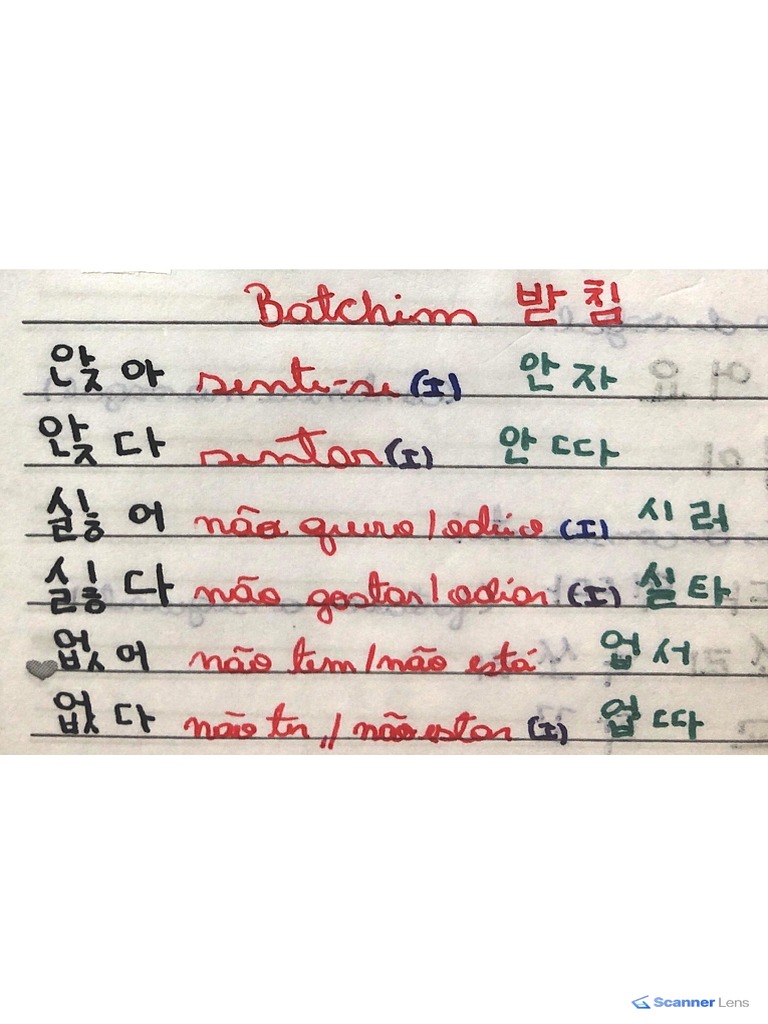 Batchim 받침
앉아 sente-se (I) 안자
앉다 sentar (I) 안따
싫어 não quero/odeio (I) 시러
싫다 não gostar/odiar (I) 실타
없어 não tem/não está 업서
없다 não ter // não estar (I) 업따
Scanner Lens